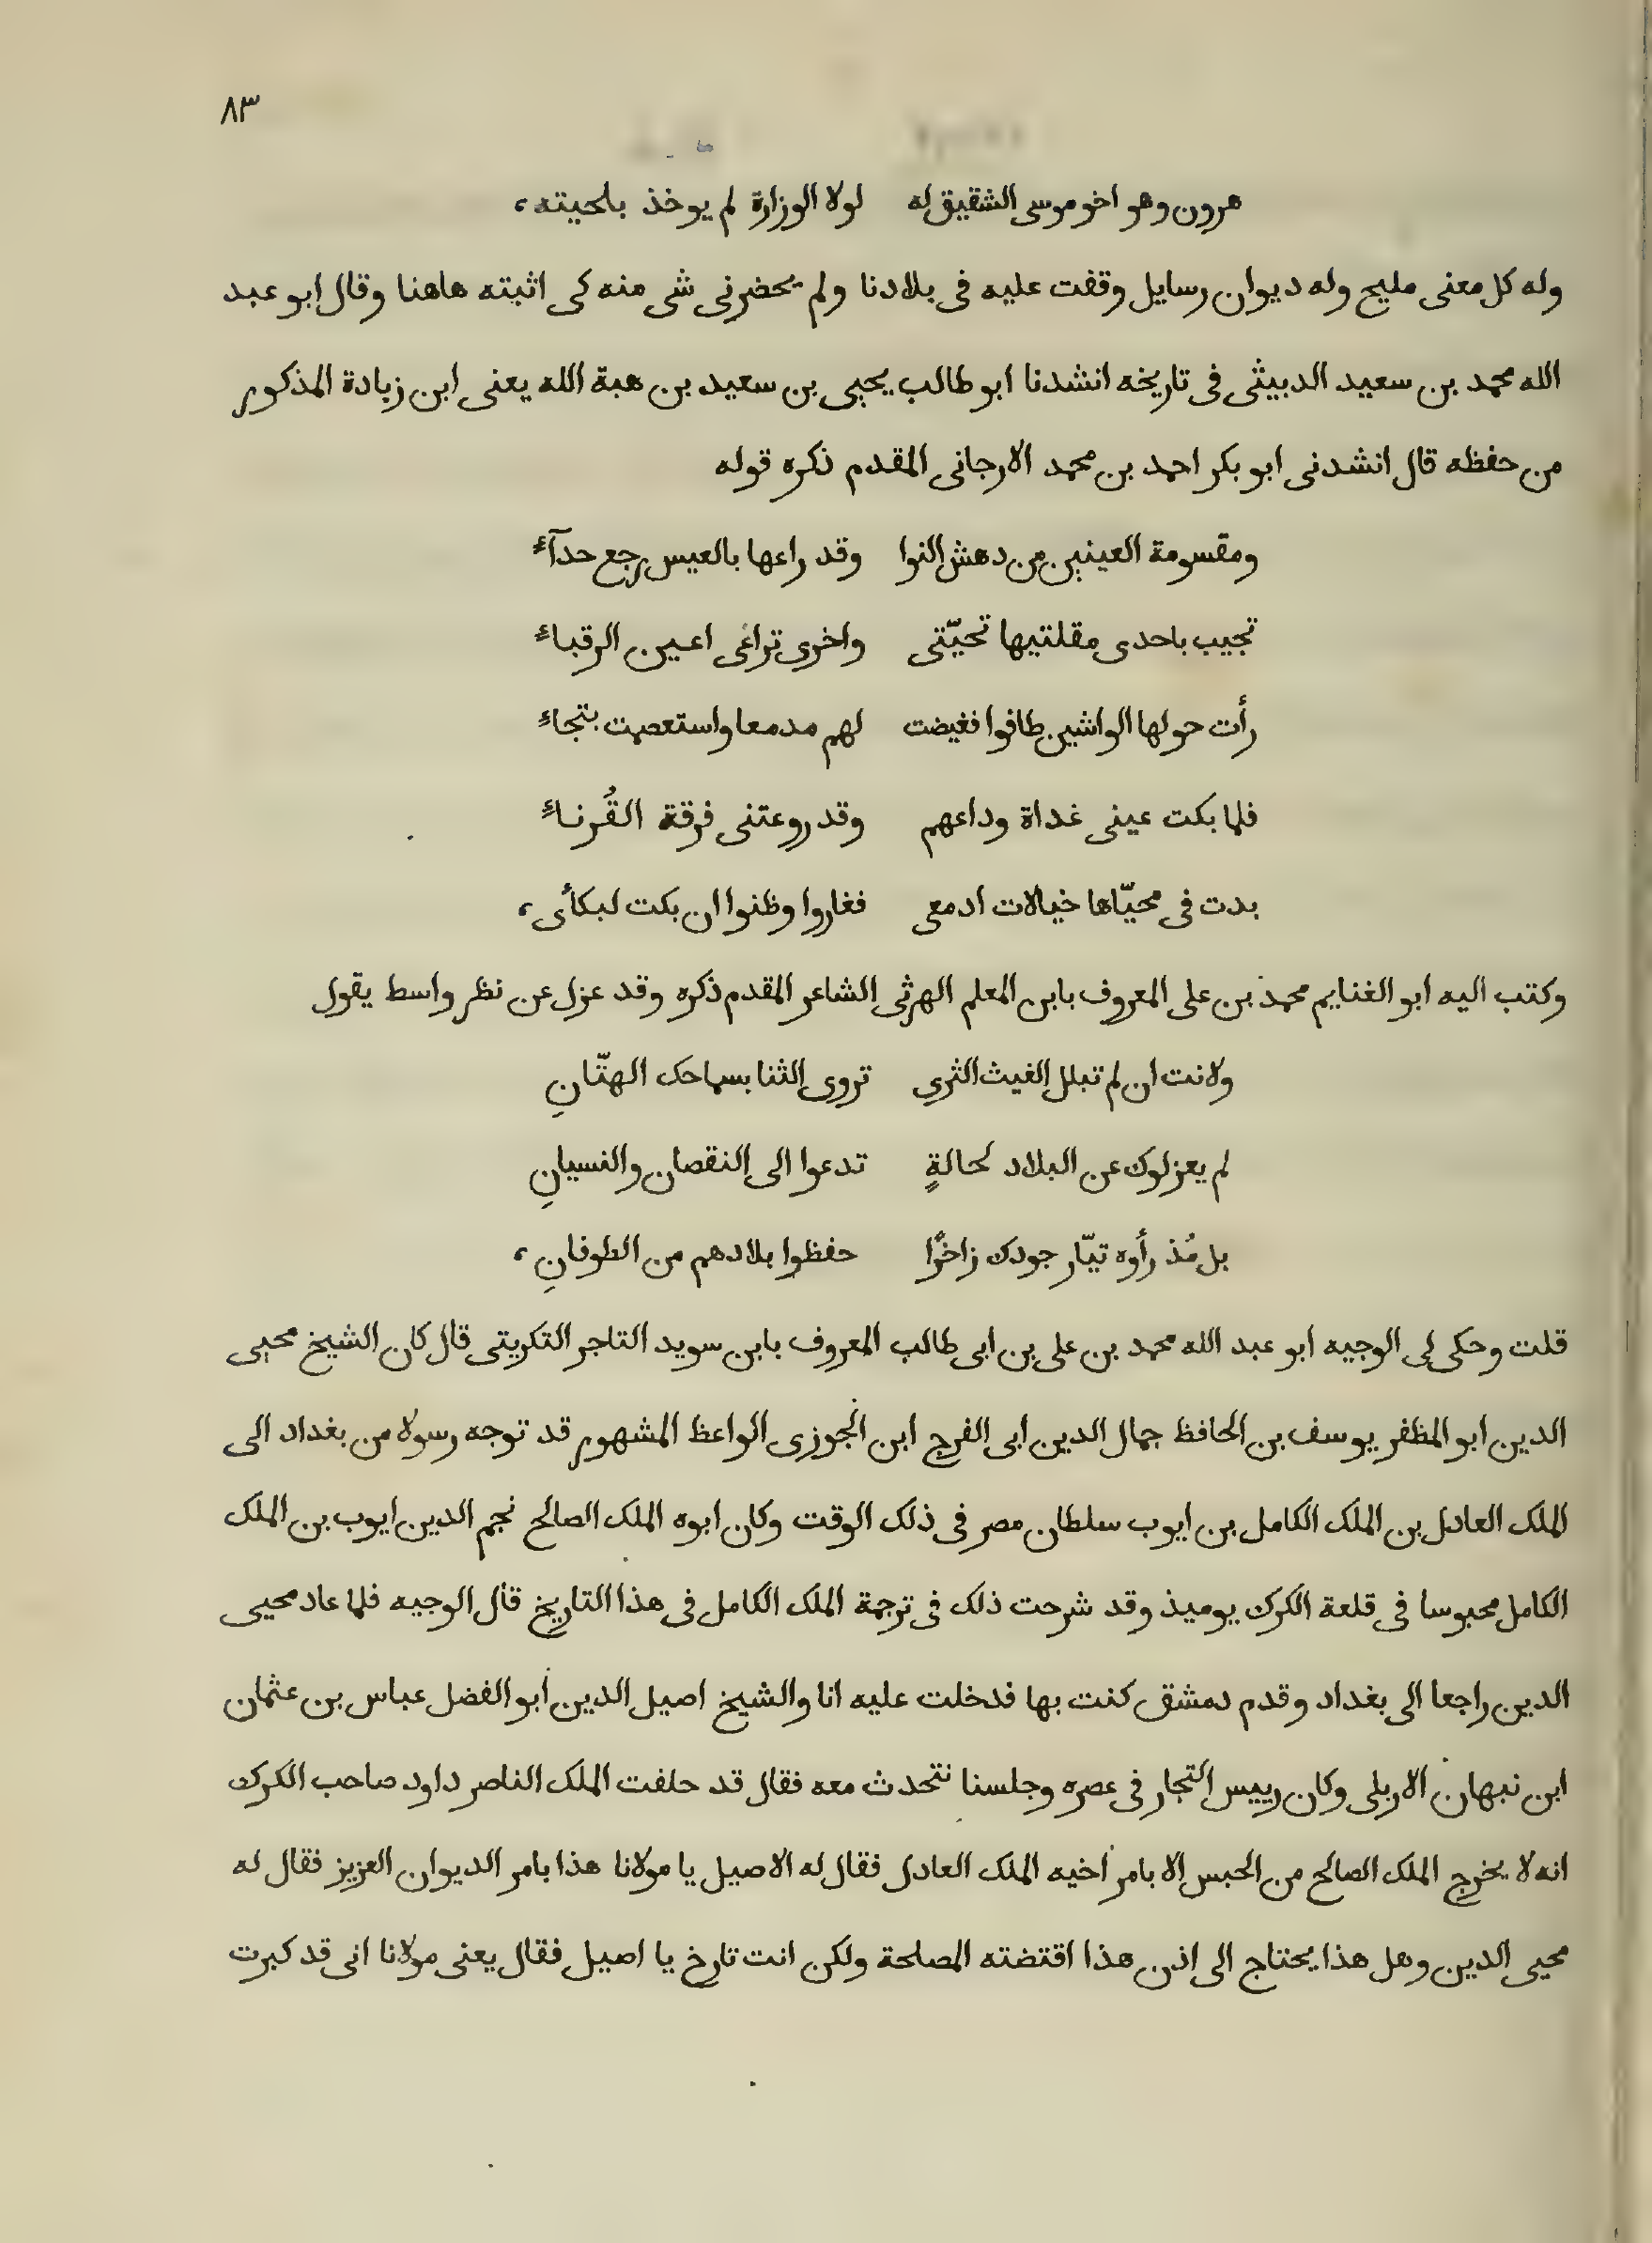 ٨٣
هرون وهو اخو موسى الشقيق له لولا الوزارة لم يوخذ بلحيته،
وله كل معنى مليح وله ديوان رسايل وقفت عليه فى بلادنا ولم يحضرنى شى منه كى اثبته هاهنا وقال ابو عبد
الله محمد بن سعيد الدبيثى فى تاريخه انشدنا ابو طالب يحيى بن سعيد بن هبة الله يعنى ابن زيادة المذكور
من حفظه قال انشدنى ابو بكر احمد بن محمد الارجانى المقدم ذكره قوله
ومقسومة العينين من دهش النوا وقد راعها بالعيس رجع حدآءِ
تجيب باحدى مقلتيها تحيّتى واخرى تراعى اعين الرقباءِ
رأت حولها الواشين طافوا فغيضت لهم مدمعا واستعصمت بتجاءِ
فلما بكت عينى غداة وداعهم وقد روعتنى فرقة القُرناءِ
بدت فى محيّاها خيالات ادمعى فغاروا وظنوا ان بكت لبكأى،
وكتب اليه ابو الغنايم محمد بن على المعروف بابن المعلم الهرثى الشاعر المقدم ذكره وقد عزل عن نظر واسط يقول
ولانت ان لم تبلل الغيث الثرى تروى الثنا بسماحك الهتّانِ
لم يعزلوك عن البلاد لحالةٍ تدعوا الى النقصان والنسيانِ
بل مُذ رأوه تيّار جودك زاخرًا حفظوا بلادهم من الطوفانِ،
قلت وحكى لى الوجيه ابو عبد الله محمد بن على بن ابى طالب المعروف بابن سويد التاجر التكريتى قال كان الشيخ محيى
الدين ابو المظفر يوسف بن الحافظ جمال الدين ابى الفرج ابن الجوزى الواعظ المشهور قد توجه رسولا من بغداد الى
الملك العادل بن الملك الكامل بن ايوب سلطان مصر فى ذلك الوقت وكان ابوه الملك الصالح نجم الدين ايوب بن الملك
الكامل محبوسا فى قلعة الكرك يوميذ وقد شرحت ذلك فى ترجمة الملك الكامل فى هذا التاريخ قال الوجيه فلما عاد محيى
الدين راجعا الى بغداد وقدم دمشق كنت بها فدخلت عليه انا والشيخ اصيل الدين ابو الفضل عباس بن عثمان
ابن نبهان الاربلى وكان رييس التجار فى عصره وجلسنا نتحدث معه فقال قد حلفت الملك الناصر داود صاحب الكرك
انه لا يخرج الملك الصالح من الحبس الا بامر اخيه الملك العادل فقال له الاصيل يا مولانا هذا بامر الديوان العزيز فقال له
محيى الدين وهل هذا يحتاج الى اذن هذا اقتضته المصلحة ولكن انت تارخ يا اصيل فقال يعنى مولانا انى قد كبرت